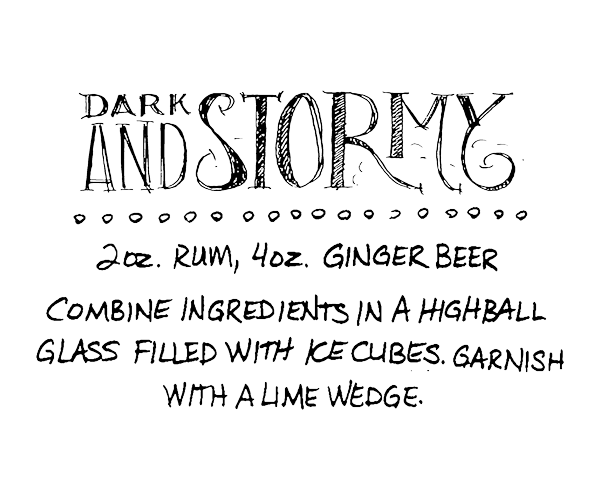 DARK
AND STORMY
2oz. RUM, 4oz. GINGER BEER
COMBINE INGREDIENTS IN A HIGHBALL
GLASS FILLED WITH ICE CUBES. GARNISH
WITH A LIME WEDGE.